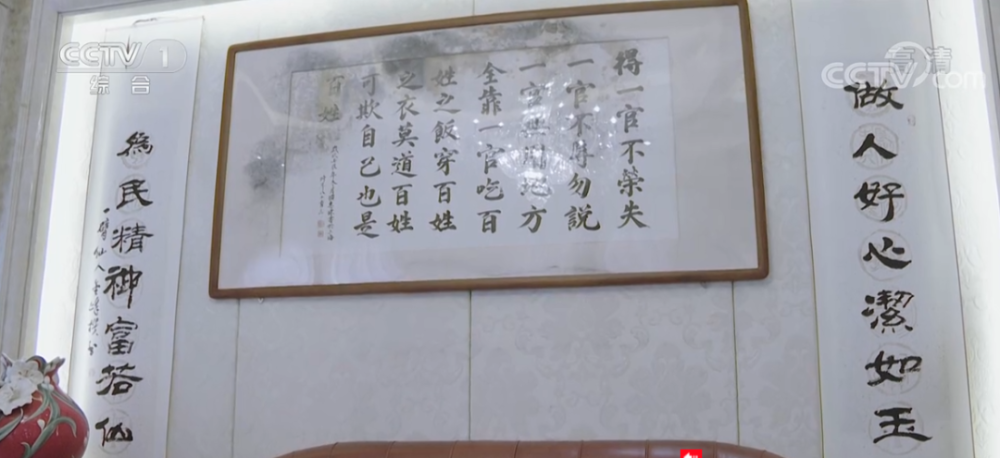 CCTV 1
综合
高清
CCTV.com
做人好心潔如玉
得一官不榮失
一官不辱勿說
一官無用地方
全靠一官吃百
姓之飯穿百姓
之衣莫道百姓
可欺自己也是
百姓
爲民精神富若仙